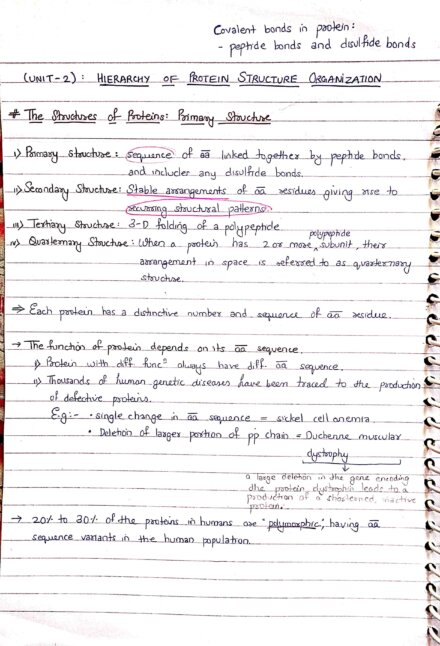 Covalent bonds in protein:
- peptide bonds and disulfide bonds
(UNIT-2): HIERARCHY OF PROTEIN STRUCTURE ORGANIZATION
* The Structures of Proteins: Primary Structure
i) Primary Structure: sequence of aa linked together by peptide bonds.
and includes any disulfide bonds.
ii) Secondary Structure: Stable arrangements of aa residues giving rise to
recurring structural patterns.
iii) Tertiary Structure: 3-D folding of a polypeptide
polypeptide
iv) Quarternary Structure: When a protein has 2 or more subunit, their
arrangement in space is referred to as quarternary
structure.
⇒ Each protein has a distinctive number and sequence of aa residue.
→ The function of protein depends on its aa sequence.
i) Protein with diff. funcⁿ always have diff. aa sequence.
ii) Thousands of human genetic diseases have been traced to the production
of defective proteins.
E.g:- • single change in aa sequence = sickel cell anemia.
• Deletion of larger portion of pp chain = Duchenne muscular
dystrophy
a large deletion in the gene encoding
the protein dystrophin leads to a
production of a shortened, inactive
protein.
→ 20% to 30% of the proteins in humans are "polymorphic", having aa
sequence variants in the human population.